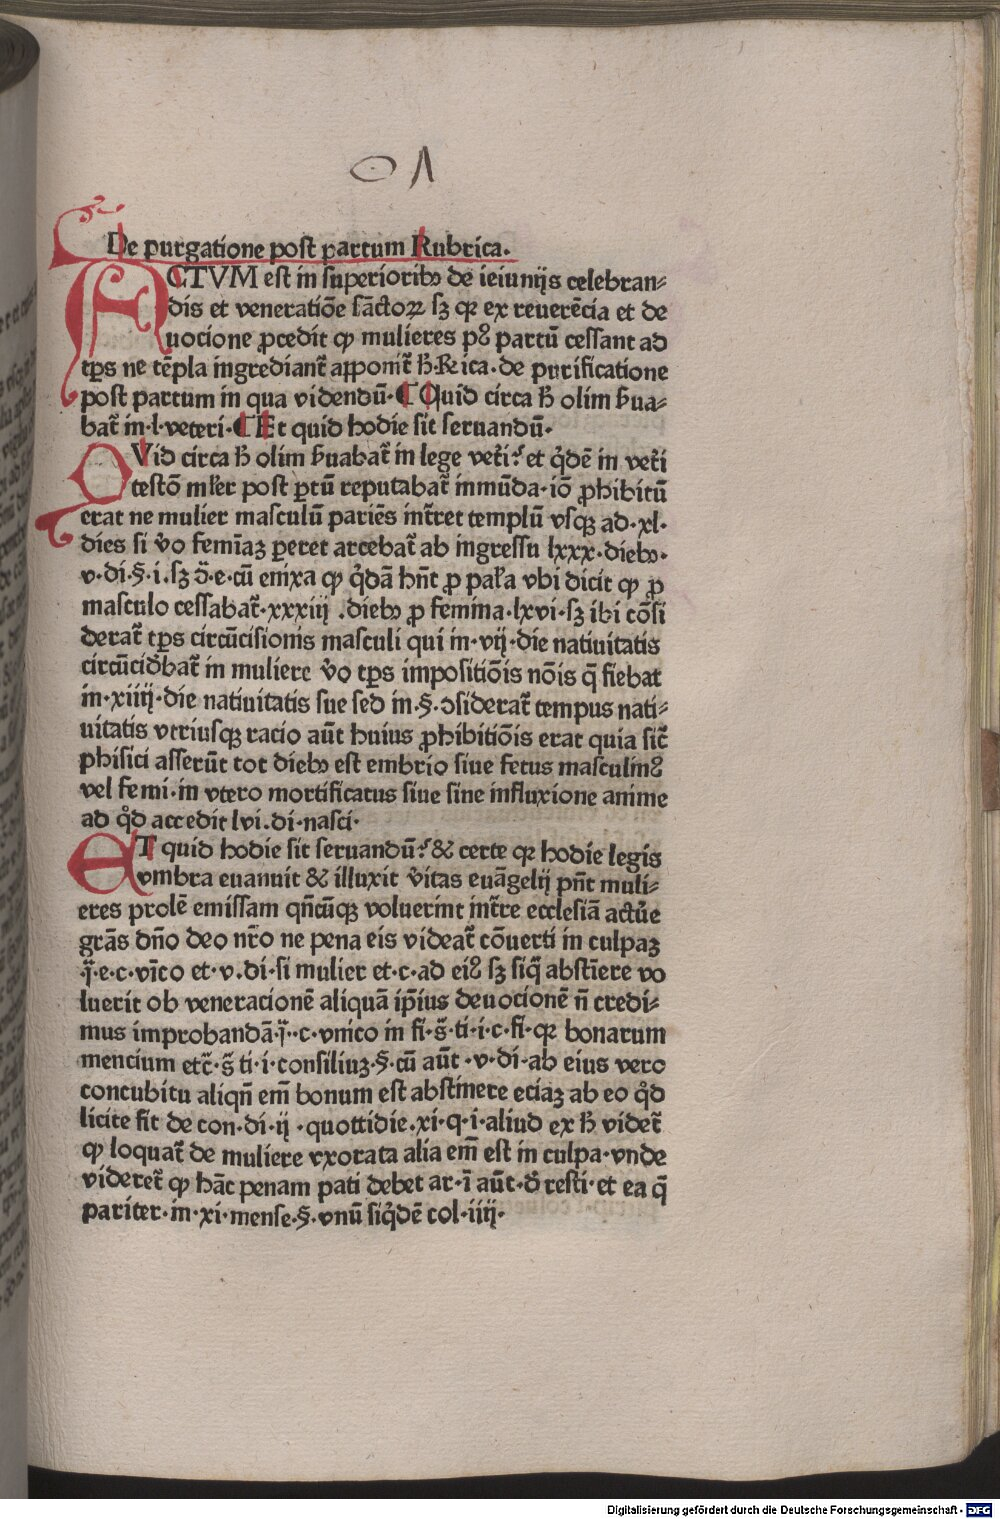 De purgatione post partum Rubrica.
ACTVM est in superioribꝰ de ieiunijs celebran⸗
dis et veneratiōe sāctoꝝ sꝫ qꝛ ex reuerēcia et de
uocione ꝓcedit ꝙ mulieres pꝰ partū cessant ad
tp̄s ne tēpla ingrediant᷑ apponit᷑ h̄·R̄ica·de purificatione
post partum in qua videndū·¶ Quid circa h̄ olim ẜua⸗
bat᷑ in·l·veteri·¶ Et quid hodie sit seruandū·
QVid circa h̄ olim ẜuabat᷑ in lege vet̄i? et q̄dē in vet̄i
testō mlȓer post ꝑtū reputabat᷑ inmūda·iō ꝓhibitū
erat ne mulier masculū pariēs int̄ret templū vsqꝫ ad·xl·
dies si v̄o femīaꝫ ꝑeret arcebat᷑ ab ingressu lxxx·diebꝰ·
v·di·§·i·sꝫ ɔ̄·e·cū enixa ꝙ q̄dā hn̄t ꝓ pal̄a vbi dicit ꝙ ꝓ
masculo cessabat᷑·xxxiij .diebꝰ ꝓ femina·lxvi·sꝫ ibi cōsi
derat᷑ tp̄s circūcisionis masculi qui in·vij·die natiuitatis
circūcid̄bat᷑ in muliere v̄o tp̄s impositiōis nōis q̄ fiebat
in·xiiij·die natiuitatis sue sed in·§·ɔsiderat᷑ tempus nati⸗
uitatis vtriusqꝫ racio aūt huius ꝓhibitiōis erat quia sic̄
phisici asserūt tot diebꝰ est embrio siue fetus masculinꝰ
vel femi·in vtero mortificatus siue sine influxione anime
ad q̄d accedit lvi.di·nasci·
ET quid hodie sit seruandū? & certe qꝛ hodie legis
vmbra euanuit & illuxit v̄itas euāgelij pn̄t muli⸗
eres prolē emissam qn̄cūqꝫ voluerint int̄re ecclesiā actūe
grās dn̄o deo nr̄o ne pena eis videat᷑ cōuerti in culpaꝫ
·j̄·e·c·vīco et·v.di·si mulier et·c·ad eiꝰ sꝫ siq̄ abstīere vo
luerit ob veneracionē aliquā ip̄ius deuocionē n̄ credi⸗
mus improbandā·j̄··c·vnico in fi·s̄·ti·i·c·fi·qꝛ bonarum
mencium etc̄·s̄ ti·i·consiliuꝫ·§·cū aūt ·v·di·ab eius vero
concubitu aliqn̄ em̄ bonum est abstinere eciaꝫ ab eo q̄d
licite fit de con·di·ij ·quottidie.xi·q·i·aliud ex h̄ videt᷑
ꝙ loquat᷑ de muliere vxorata alia em̄ est in culpa·vnde
videret᷑ ꝙ hāc penam pati debet ar·ī aūt·d̄ resti·et ea q̄
pariter·in·xi·mense·§·vnū siq̄dē col·iiij·
Digitalisierung gefördert durch die Deutsche Forschungsgemeinschaft · DFG